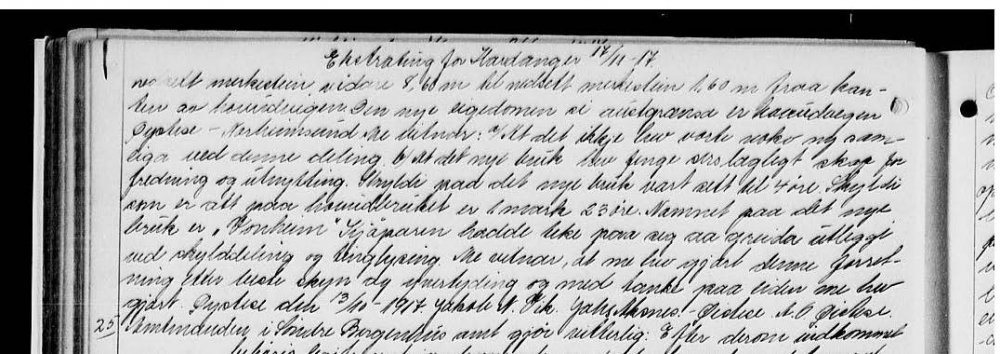 Ekstrating for Hardanger 17/11-17
nedsett merkestein, vidare 8,60 m til nedsett merkestein 1,60 m fraa kan-
ten av hovudvegen. Den nye eigedomen si austgrensa er hovudvegen
Øystese - Norheimsund. Me vitnar: a/ At det ikkje hev vorte noko ny sam-
eiga ved denne deling. b/ At det nye bruk hev fenge skap for
fredning og utnytting. Skyldi paa det nye bruk vart sett til 4 øre. Skyldi
som er att paa hovudbruket er 1 mark 23 øre. Namnet paa det nye
bruk er "Vonheim". Kjøparen hadde teke paa seg aa greida utlegg
ved skylddeling og tinglysing. Me vitnar, at me hev gjort denne forret-
ning etter beste skyn og yvertyding og med tanke paa eiden me hev
gjort. Øystese den 13/10-1917. Jakob N. Vik. Øistese. N. O. Øistese.
25 Amtmanden i Søndre Bergenhus amt gjør vitterlig: Efter derom indkommet